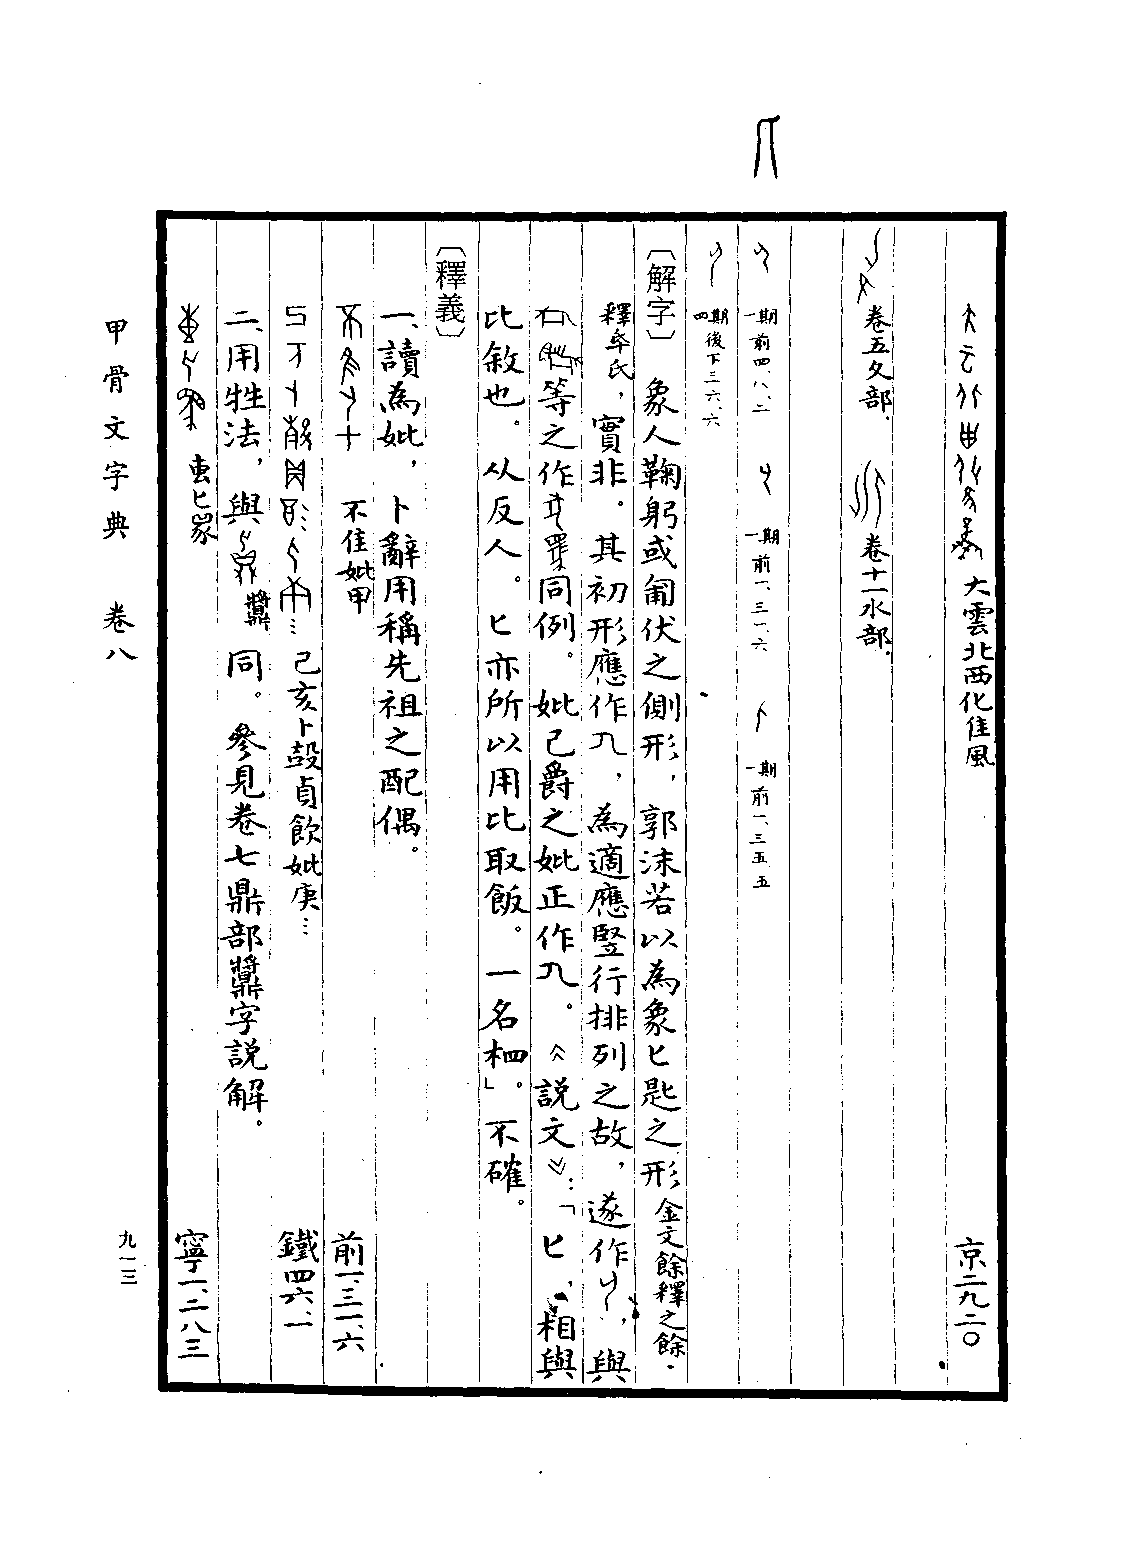 大雲北西化隹風 京二九二〇
卷五夂部． 卷十一水部．
一期前四、八、二 一期前一、三一、六 一期前一、三五、五
四期後下三六、六
〔解字〕象人鞠躬或匍伏之側形，郭沫若以為象匕匙之形金文餘釋之餘．
釋氏，實非。其初形應作，為適應竪行排列之故，遂作，與
等之作同例。妣己爵之妣正作。《説文》：「匕，相與
比敘也。从反人。匕亦所以用比取飯。一名柶。」不確。
〔釋義〕
一、讀為妣，卜辭用稱先祖之配偶。
不隹妣甲 前一、三一、六
…己亥卜㱿貞飲妣庚… 鐵四六、一
二、用牲法，與同。參見卷七鼎部字説解。
叀匕 寧一、二八三
甲骨文字典 卷八
九一三